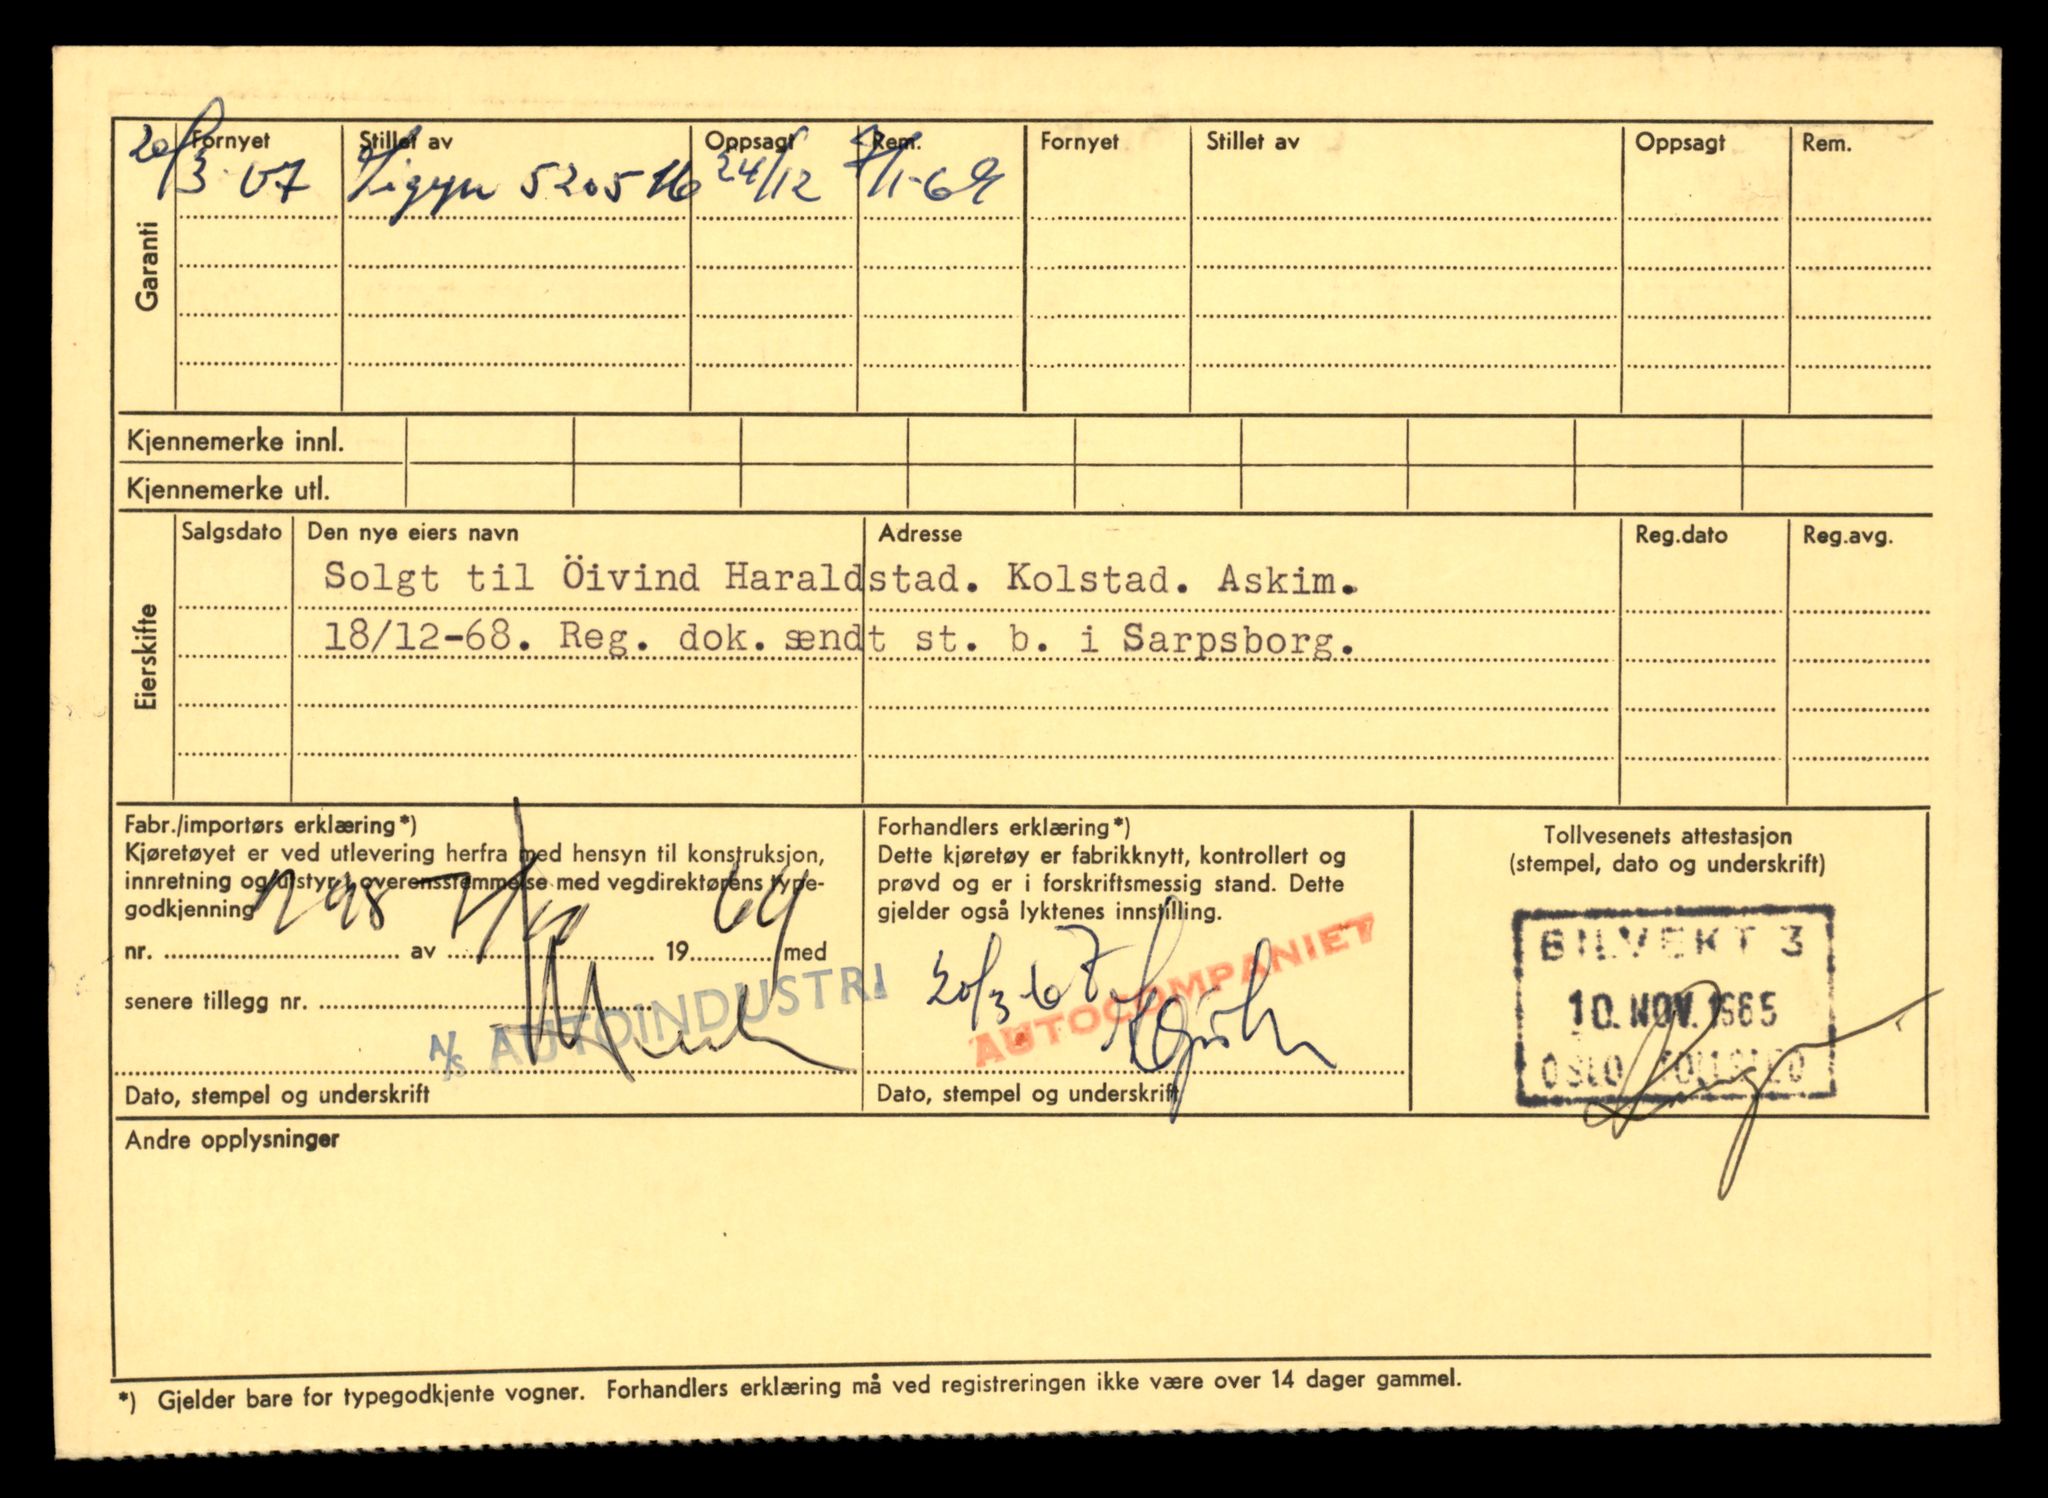 Garanti
Fornyet Stillet av Oppsagt Rem. Fornyet Stillet av Oppsagt Rem.
20/3 67 Sigyn 520516 24/12 7/1-69
Kjennemerke innl.
Kjennemerke utl.
Eierskifte
Salgsdato Den nye eiers navn Adresse Reg.dato Reg.avg.
Solgt til Öivind Haraldstad. Kolstad. Askim.
18/12-68. Reg. dok. sendt st. b. i Sarpsborg.
Fabr./importørs erklæring*)
Kjøretøyet er ved utlevering herfra med hensyn til konstruksjon,
innretning og utstyr i overensstemmelse med vegdirektørens type-
godkjenning
nr. av 19 64 med
senere tillegg nr.
A/S AUTOINDUSTRI
Dato, stempel og underskrift
Forhandlers erklæring*)
Dette kjøretøy er fabrikknytt, kontrollert og
prøvd og er i forskriftsmessig stand. Dette
gjelder også lyktenes innstilling.
20/3 67
AUTOCOMPANIET
Dato, stempel og underskrift
Tollvesenets attestasjon
(stempel, dato og underskrift)
BILVEKT 3
10. NOV. 1965
OSLO TOLLSTED
Andre opplysninger
*) Gjelder bare for typegodkjente vogner. Forhandlers erklæring må ved registreringen ikke være over 14 dager gammel.